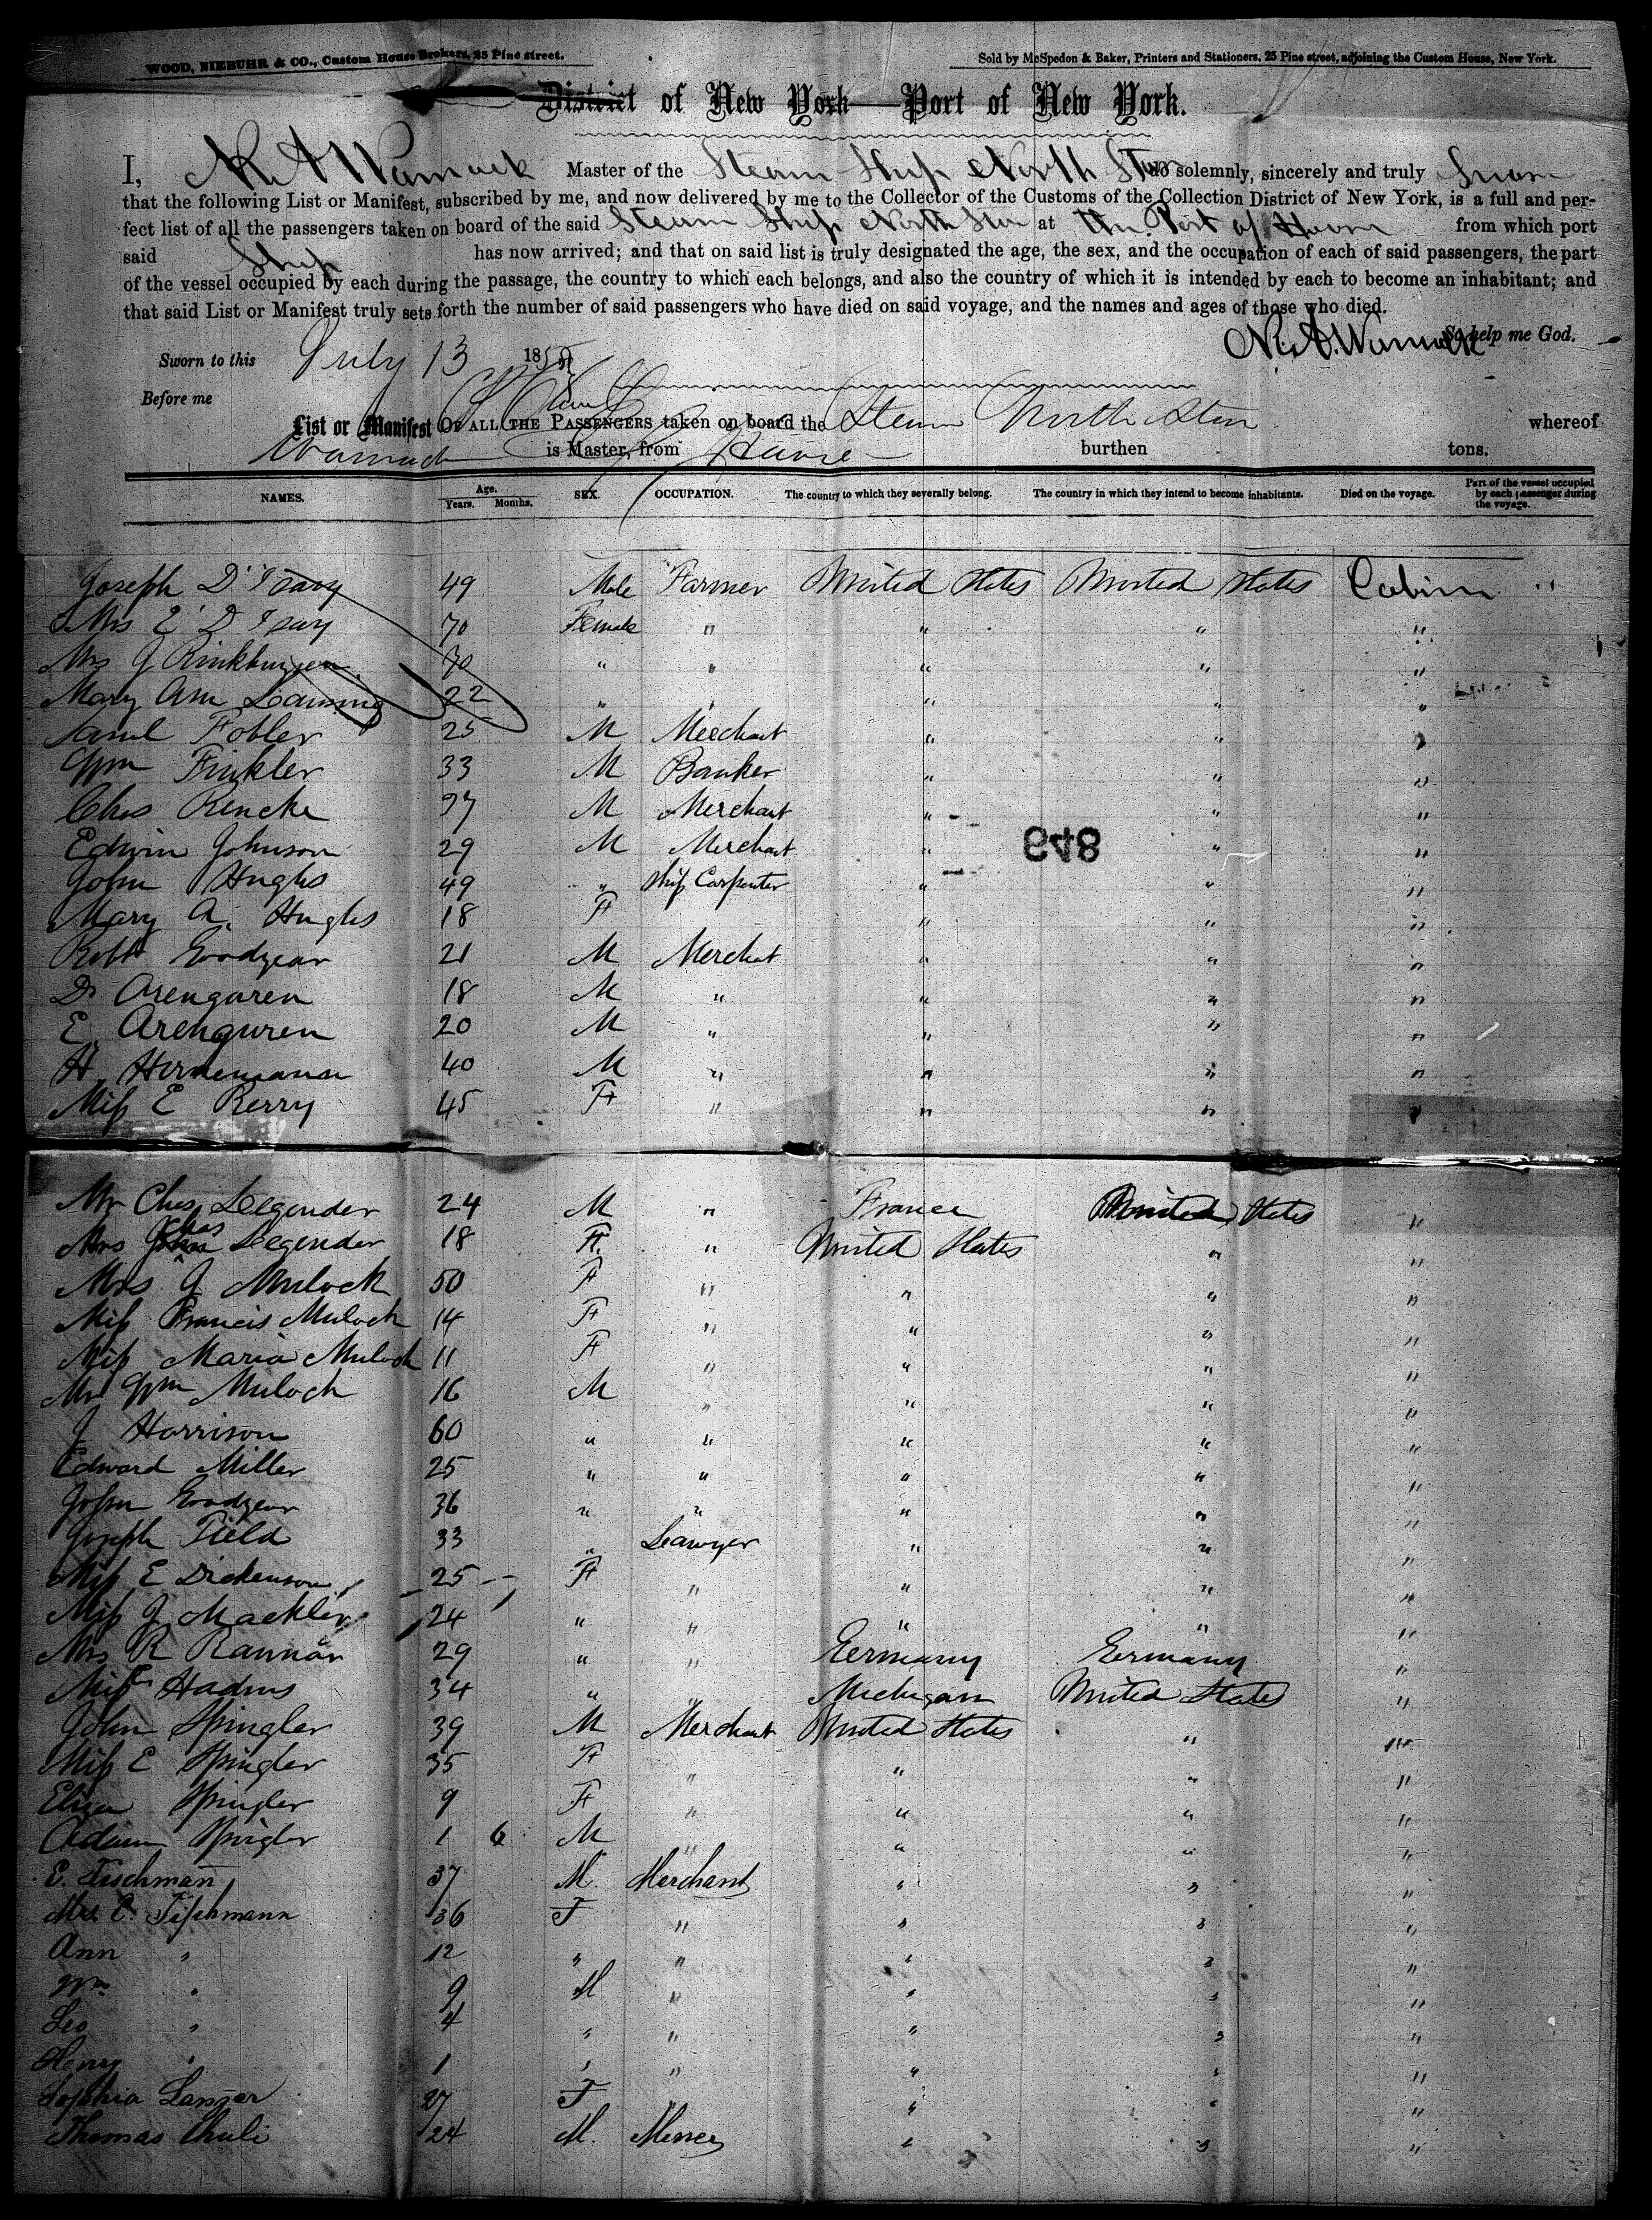 WOOD, NIEBUHR & CO., Custom House Brokers, 25 Pine street.
Sold by McSpedon & Baker, Printers and Stationers, 25 Pine street, adjoining the Custom House, New York.
District of New York—Port of New York.
I, Master of the Steam Ship North Star do solemnly, sincerely and truly Swear
that the following List or Manifest, subscribed by me, and now delivered by me to the Collector of the Customs of the Collection District of New York, is a full and per-
fect list of all the passengers taken on board of the said Steam Ship North Star at the Port of from which port
said Ship has now arrived; and that on said list is truly designated the age, the sex, and the occupation of each of said passengers, the part
of the vessel occupied by each during the passage, the country to which each belongs, and also the country of which it is intended by each to become an inhabitant; and
that said List or Manifest truly sets forth the number of said passengers who have died on said voyage, and the names and ages of those who died.
So help me God.
Sworn to this July 13 185
Before me
List or Manifest OF ALL THE PASSENGERS taken on board the Steam North Star whereof
is Master, from Havre burthen tons.
NAMES. Age. Years. Months. SEX. OCCUPATION. The country to which they severally belong. The country in which they intend to become inhabitants. Died on the voyage. Part of the vessel occupied by each passenger during the voyage.
Joseph D 49 Male Farmer United States United States Cabin "
Mrs E D 70 Female " " " "
Mrs J 70 " " " " "
Mary Ann Lanning 22 " " " " "
Saml Fobler 25 M Merchant " " "
Wm Finkler 33 M Banker " " "
Chas Rencke 37 M Merchant " " "
848
Edwin Johnson 29 M Merchant " " "
John Hughs 49 " Ship Carpenter " " "
Mary A. Hughs 18 F " " "
Robt Goodyear 21 M Merchat " " "
D Arenguren 18 M " " " "
E Arenguren 20 M " " " "
H Hernemann 40 M " " " "
Miss E Berry 45 F " " " "
Mr Chas Legender 24 M " France United States "
Mrs Chas Legender 18 F. " United States " "
Mrs J Mulock 50 F " " " "
Miss Francis Mulock 14 F " " " "
Miss Maria Mulock 11 F " " " "
Mr Wm Mulock 16 M " " " "
J Harrison 60 " " " " "
Edward Miller 25 " " " " "
John Goodyear 36 " " " " "
Joseph Field 33 " Lawyer " " "
Miss E Dickenson 25 F " " " "
Miss J Macklin 24 " " " " "
Mrs R Rannan 29 " " Germany Germany "
Miss E Hadms 34 " " Michigan United States "
John Spingler 39 M Merchant United States " "
Miss E Spingler 35 F " " " "
Eliza Spingler 9 F " " " "
Adam Spingler 1 6 M " " " "
E. Fischmann 37 M. Merchant " " "
Mrs E. Fischmann 36 F " " " "
Ann " 12 " " " " "
Wm " 9 M " " " "
Leo " 4 " " " " "
Henry " 1 " " " " "
Sophia Langer 27 F " " "
Thomas 24 M. " " "